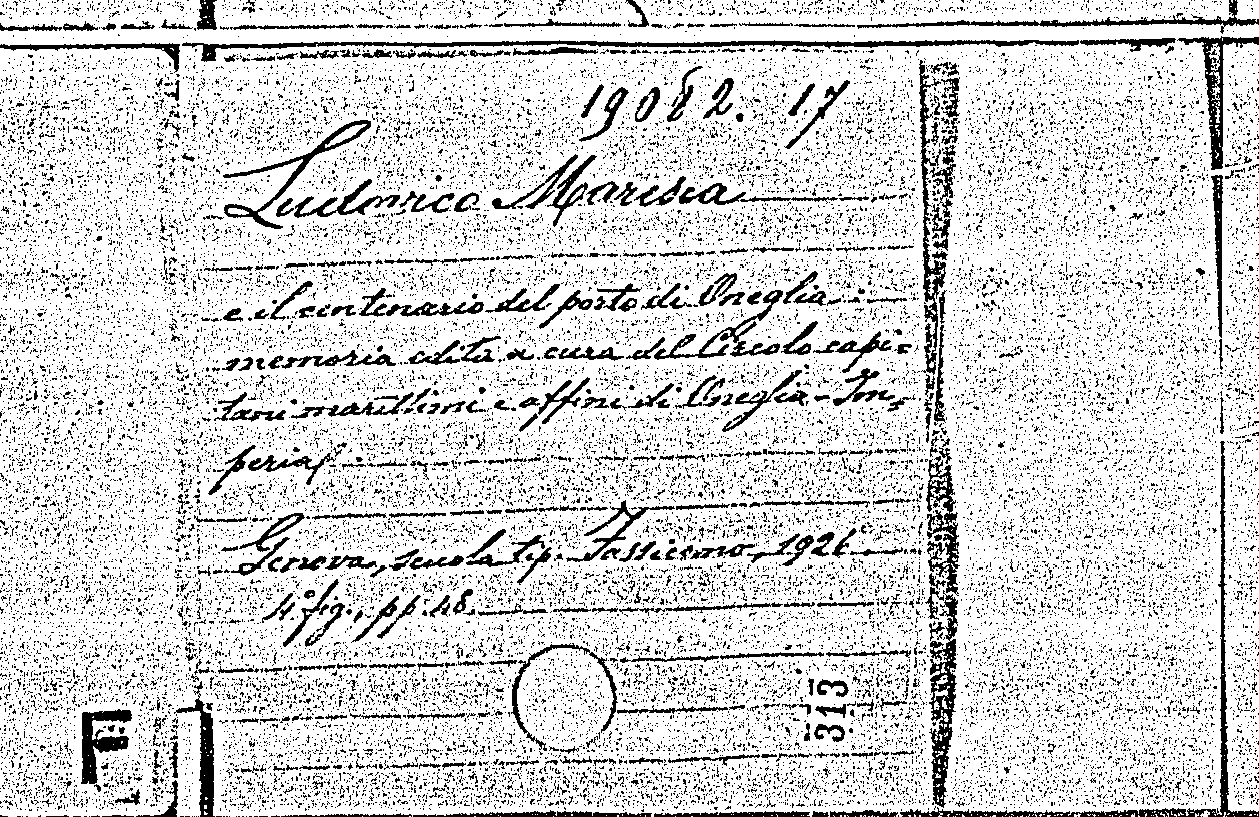 19082. 17
Ludovico Maresca
e il centenario del porto di Oneglia :
memoria edita a cura del Circolo capi=
tani marittimi e affini di Oneglia - Im=
peria.
Genova, scuola tip. Fassicomo, 1926
4° fig., pp. 48.
313